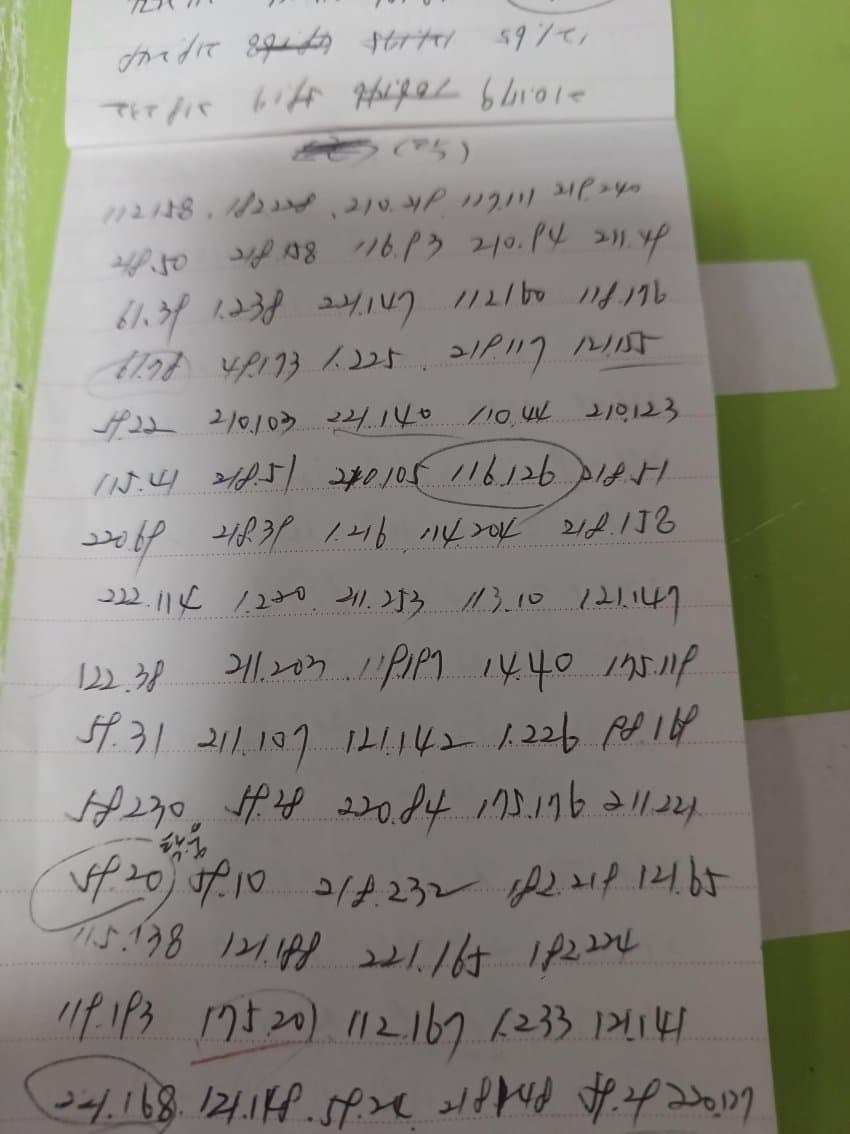 (25)
112.158. 182.228. 210.219. 117.111 218.240
218.50 218.158 116.93 210.94 211.49
61.39 1.238 221.147 112.160 118.176
61.78 49.173 1.225. 219.117 121.155
59.22 210.103 221.140 110.44 210.123
115.41 218.51 210.105 116.126 218.51
220.69 218.39 1.216 114.204 218.158
222.114 1.220. 211.253 113.10 121.147
122.38 211.203 119.197 14.40 175.119
59.31 211.107 121.142 1.226 98.169
58.230 59.28 220.84 175.176 211.221
59.20 59.10 218.232 182.219 121.65
115.138 121.188 221.165 182.224
119.193 175.201 112.167 1.233 121.141
221.168. 121.148. 59.24 218.148 59.29 220.127